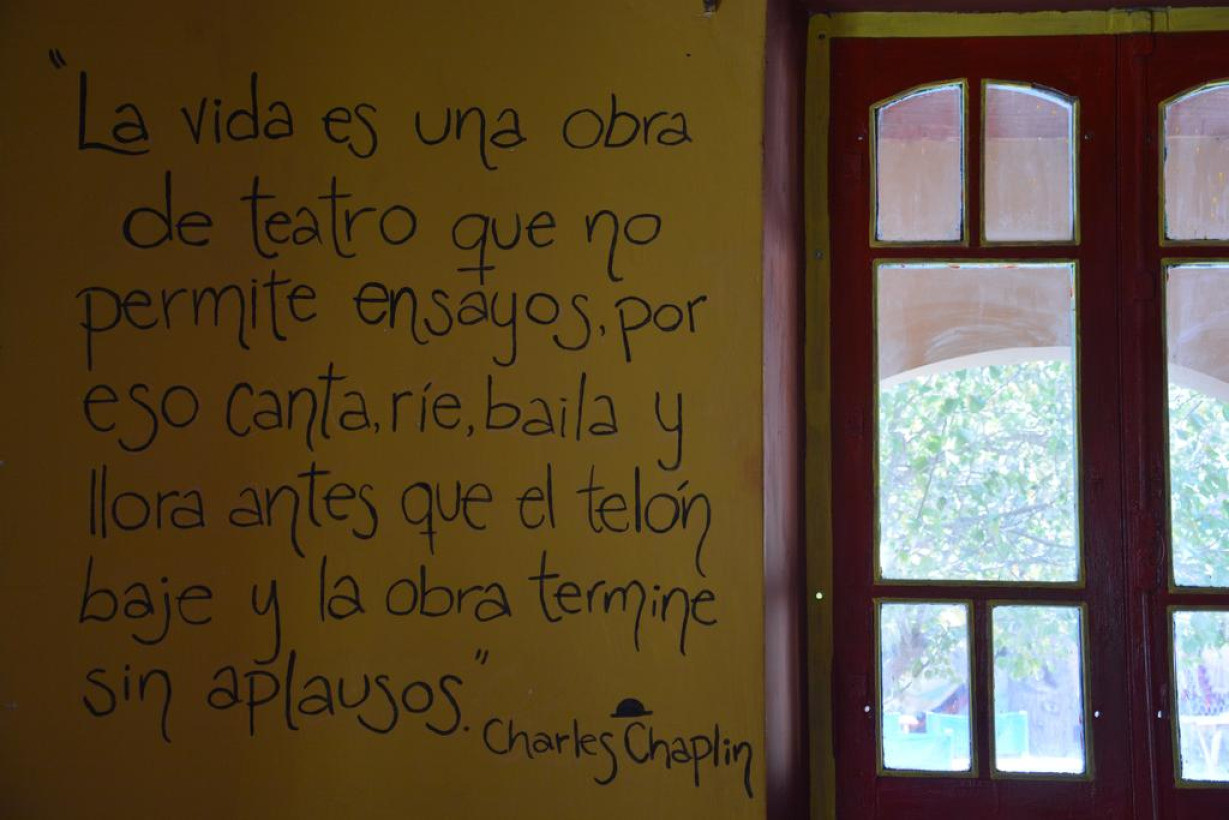 "La vida es una obra
de teatro que no
permite ensayos, por
eso canta, ríe, baila y
llora antes que el telón
baje y la obra termine
sin aplausos."
Charles Chaplin